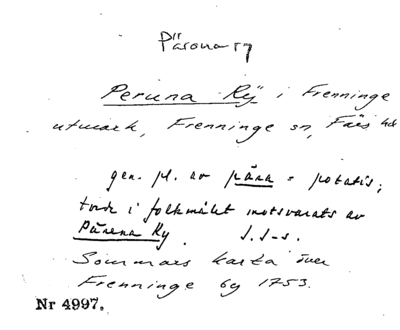 Päronary
Peruna Rÿ i Frenninge
utmark, Frenninge sn, Färs hd
gen. pl. av pära = potatis;
torde i folkmålet motsvarats av
Pärena Ry J. S-s.
Sommars karta över
Frenninge by 1753.
Nr 4997.